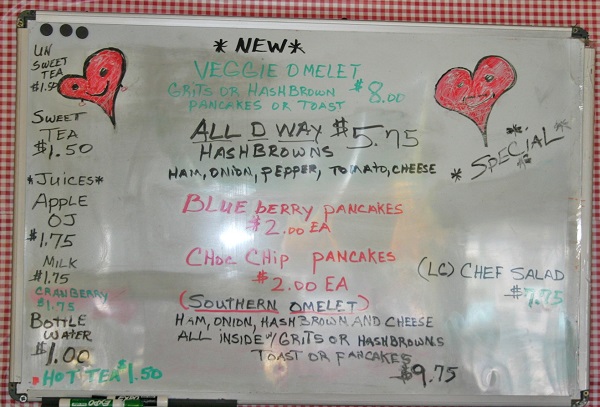 UN
SWEET
TEA
$1.50
SWEET
TEA
$1.50
*JUICES*
APPLE
OJ
$1.75
MILK
$1.75
CRANBERRY
$1.75
BOTTLE
WATER
$1.00
HOT TEA $1.50
*NEW*
VEGGIE OMELET
GRITS OR HASHBROWN $8.00
PANCAKES OR TOAST
ALL D WAY $5.75
HASHBROWNS
HAM, ONION, PEPPER, TOMATO, CHEESE
BLUEBERRY PANCAKES
$2.00 EA
CHOC CHIP PANCAKES
$2.00 EA
(SOUTHERN OMELET)
HAM, ONION, HASHBROWN AND CHEESE
ALL INSIDE W/ GRITS OR HASHBROWNS
TOAST OR PANCAKES
$9.75
* SPECIAL *
(LG) CHEF SALAD
$7.75
EXPO